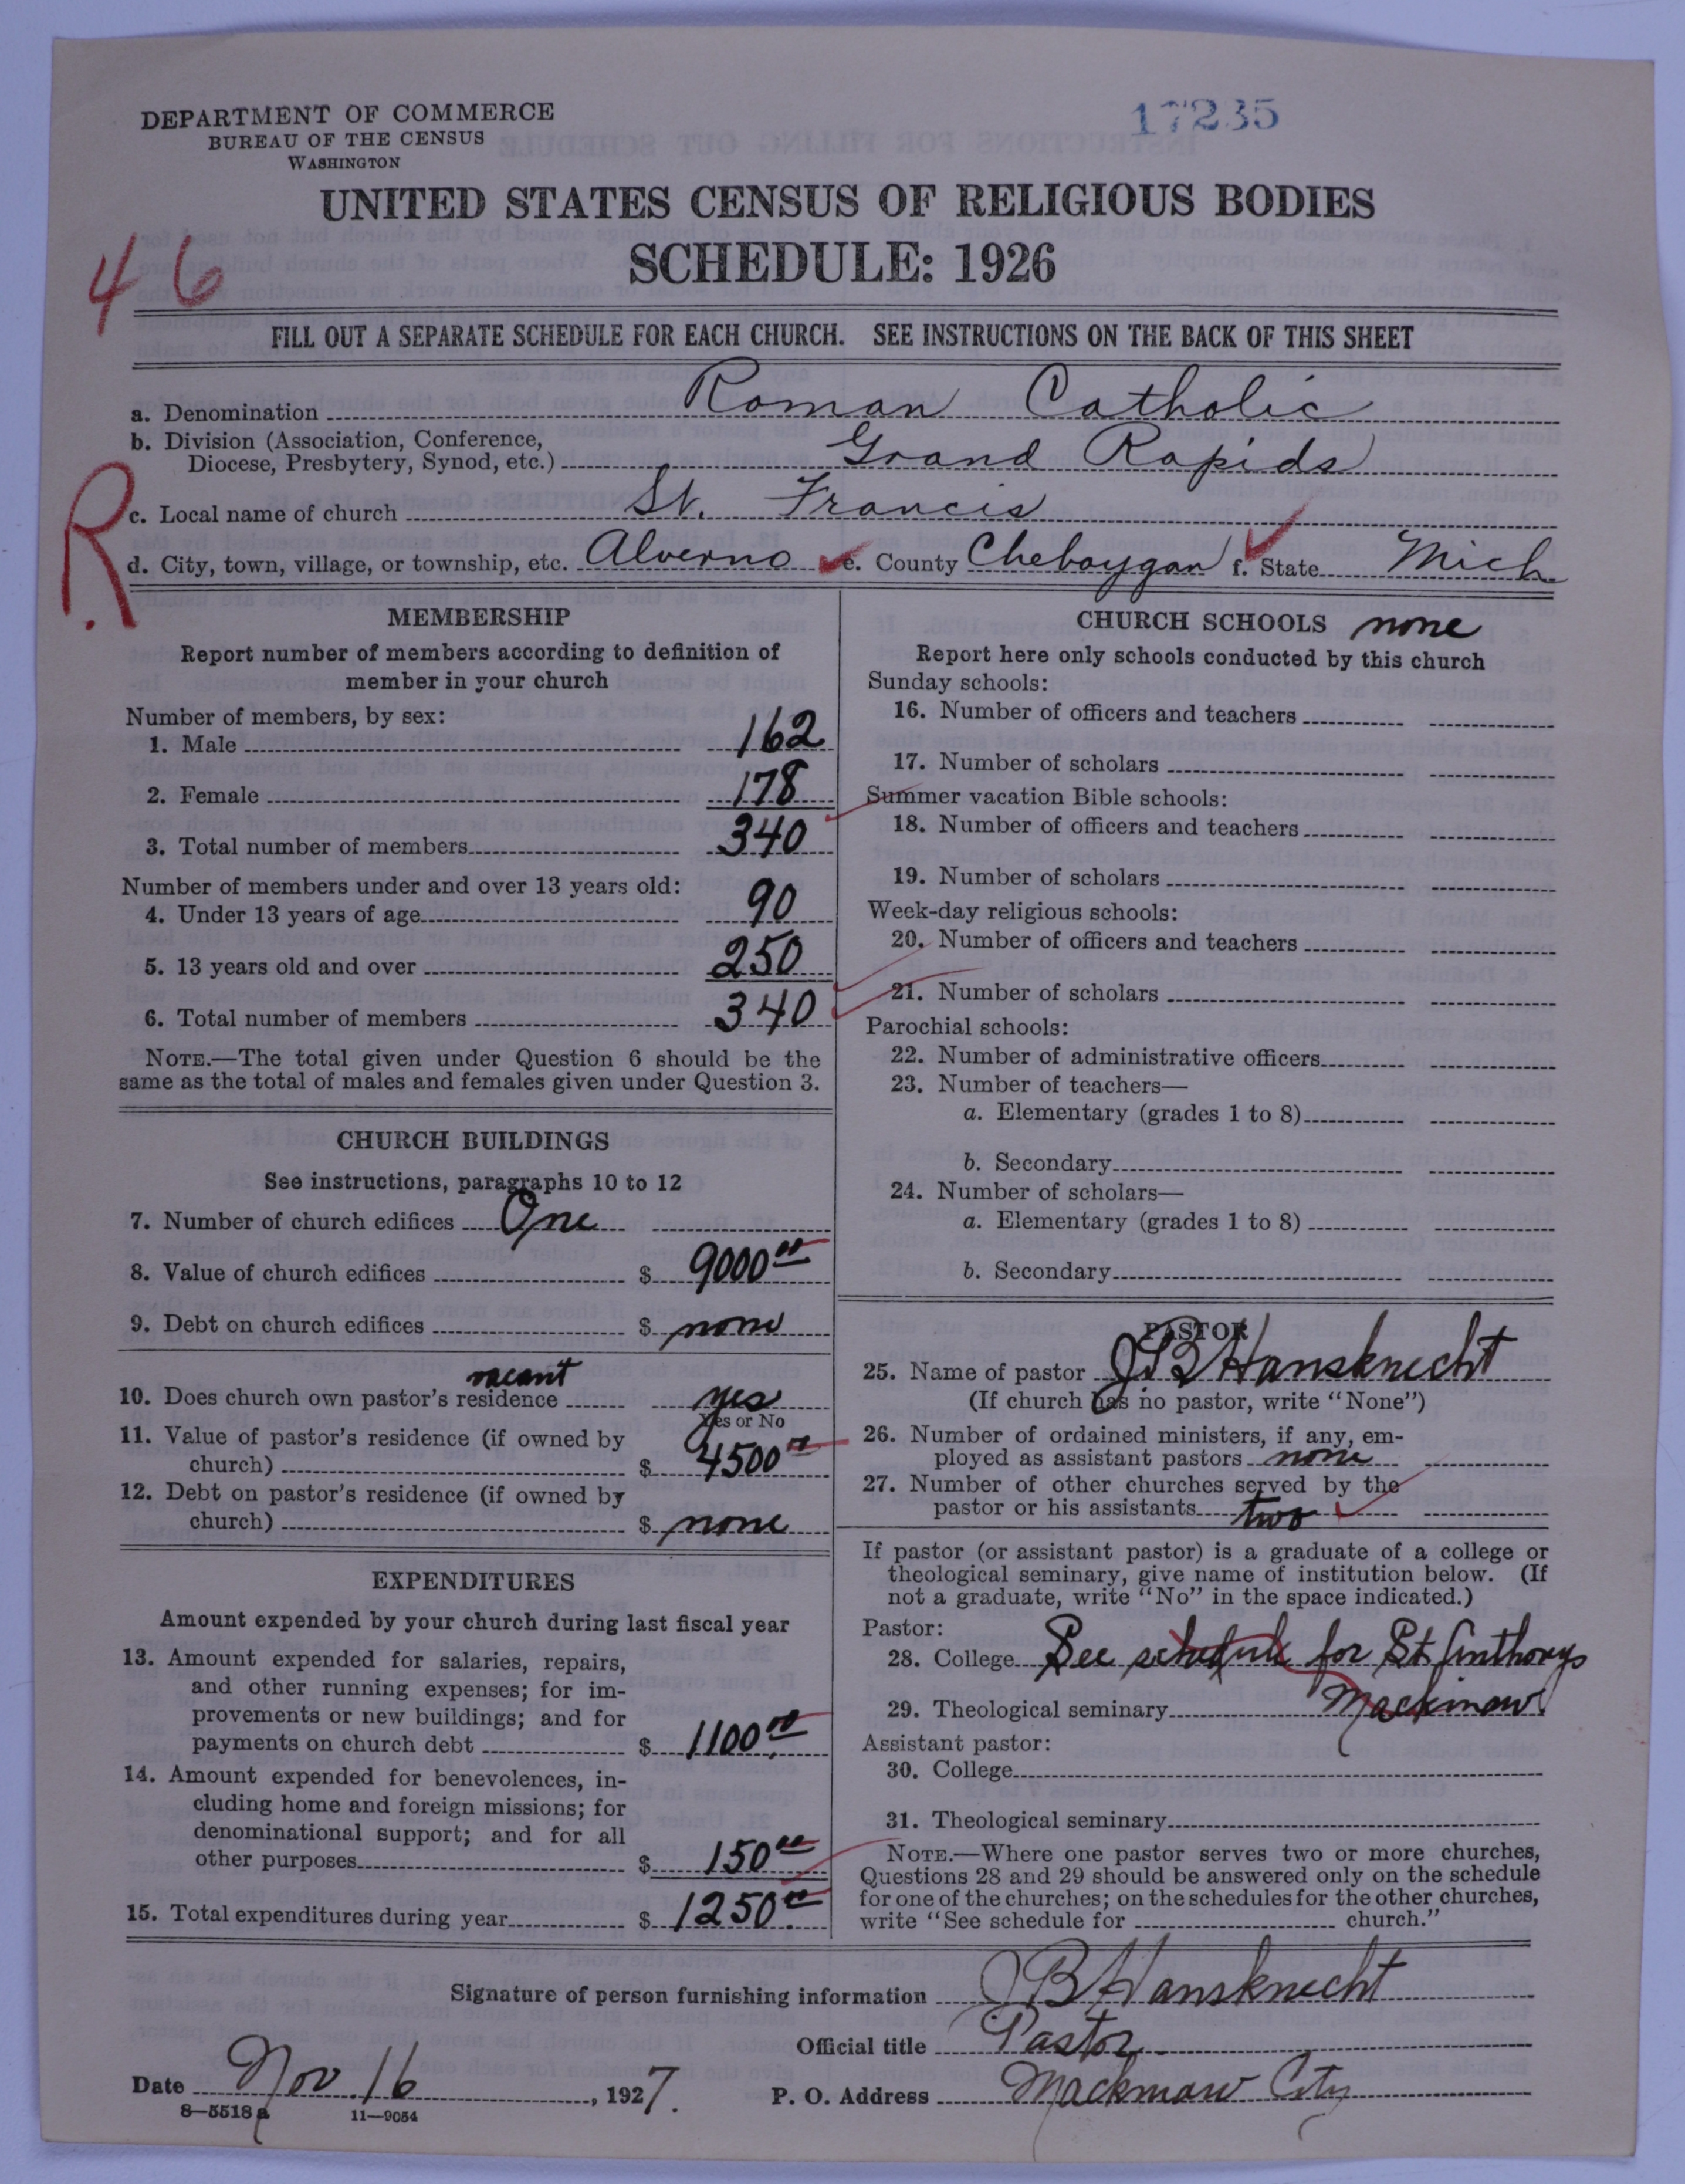 DEPARTMENT OF COMMERCE
BUREAU OF THE CENSUS
WASHINGTON
17235
UNITED STATES CENSUS OF RELIGIOUS BODIES
SCHEDULE: 1926
46
FILL OUT A SEPARATE SCHEDULE FOR EACH CHURCH. SEE INSTRUCTIONS ON THE BACK OF THIS SHEET
a. Denomination Roman Catholic
b. Division (Association, Conference,
Diocese, Presbytery, Synod, etc.) Grand Rapids
R.
c. Local name of church St. Francis
d. City, town, village, or township, etc. Alverno e. County Cheboygan f. State Mich
MEMBERSHIP
Report number of members according to definition of
member in your church
Number of members, by sex:
1. Male 162
2. Female 178
3. Total number of members 340
Number of members under and over 13 years old:
4. Under 13 years of age 90
5. 13 years old and over 250
6. Total number of members 340
NOTE.—The total given under Question 6 should be the
same as the total of males and females given under Question 3.
CHURCH BUILDINGS
See instructions, paragraphs 10 to 12
7. Number of church edifices One
8. Value of church edifices $ 9000 00
9. Debt on church edifices $ none
vacant
10. Does church own pastor's residence yes
Yes or No
11. Value of pastor's residence (if owned by
church) $ 4500 00
12. Debt on pastor's residence (if owned by
church) $ none
EXPENDITURES
Amount expended by your church during last fiscal year
13. Amount expended for salaries, repairs,
and other running expenses; for im-
provements or new buildings; and for
payments on church debt $ 1100 00
14. Amount expended for benevolences, in-
cluding home and foreign missions; for
denominational support; and for all
other purposes $ 150 00
15. Total expenditures during year $ 1250 00
CHURCH SCHOOLS none
Report here only schools conducted by this church
Sunday schools:
16. Number of officers and teachers
17. Number of scholars
Summer vacation Bible schools:
18. Number of officers and teachers
19. Number of scholars
Week-day religious schools:
20. Number of officers and teachers
21. Number of scholars
Parochial schools:
22. Number of administrative officers
23. Number of teachers—
a. Elementary (grades 1 to 8)
b. Secondary
24. Number of scholars—
a. Elementary (grades 1 to 8)
b. Secondary
PASTOR
25. Name of pastor J B Hansknecht
(If church has no pastor, write "None")
26. Number of ordained ministers, if any, em-
ployed as assistant pastors none
27. Number of other churches served by the
pastor or his assistants two
If pastor (or assistant pastor) is a graduate of a college or
theological seminary, give name of institution below. (If
not a graduate, write "No" in the space indicated.)
Pastor:
28. College See schedule for St Anthonys
29. Theological seminary Mackinaw
Assistant pastor:
30. College
31. Theological seminary
NOTE.—Where one pastor serves two or more churches,
Questions 28 and 29 should be answered only on the schedule
for one of the churches; on the schedules for the other churches,
write "See schedule for church."
Signature of person furnishing information J B Hansknecht
Official title Pastor
Date Nov. 16, 1927. P. O. Address Mackinaw City
8—5518 a 11—9054